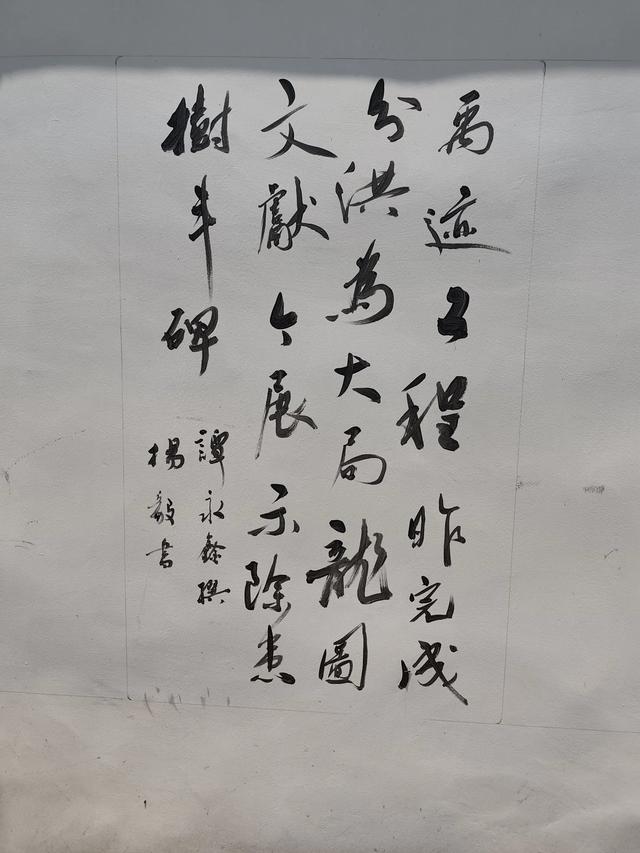 禹迹工程昨完成
分洪為大局龍圖
文獻今展示除患
樹丰碑
譚永鑫撰
楊毅書